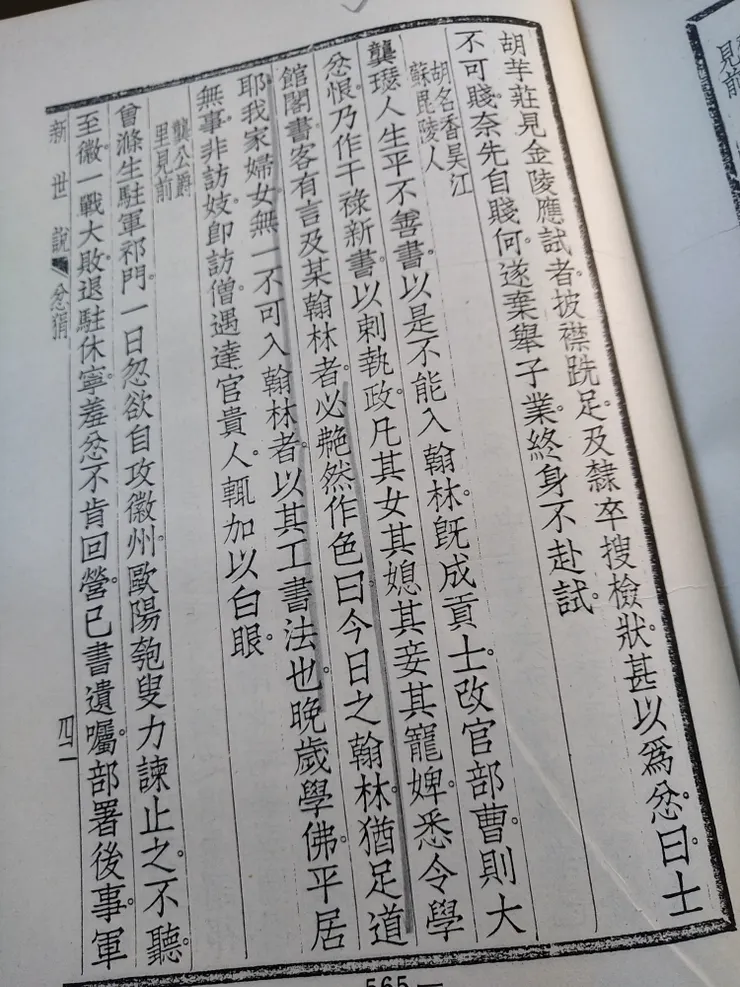 見前
胡芋莊見金陵應試者。披襟跣足。及隸卒搜檢狀。甚以爲忿。曰。士
不可賤。奈先自賤何。遂棄舉子業。終身不赴試。
胡名香昊江
蘇毘陵人
龔璱人生平不善書。以是不能入翰林。既成貢士。改官部曹。則大
忿恨。乃作干祿新書。以刺執政。凡其女其媳其妾其寵婢。悉令學
館閣書。客有言及某翰林者。必艴然作色曰。今日之翰林。猶足道
耶。我家婦女。無一不可入翰林者。以其工書法也。晚歲學佛。平居
無事。非訪妓。卽訪僧。遇達官貴人。輒加以白眼。
龔公爵
里見前
曾滌生駐軍祁門。一日忽欲自攻徽州。歐陽匏叟力諫止之。不聽。
至徽一戰大敗。退駐休寧。羞忿不肯回營。已書遺囑。部署後事。軍
新世說 忿狷 四二
565